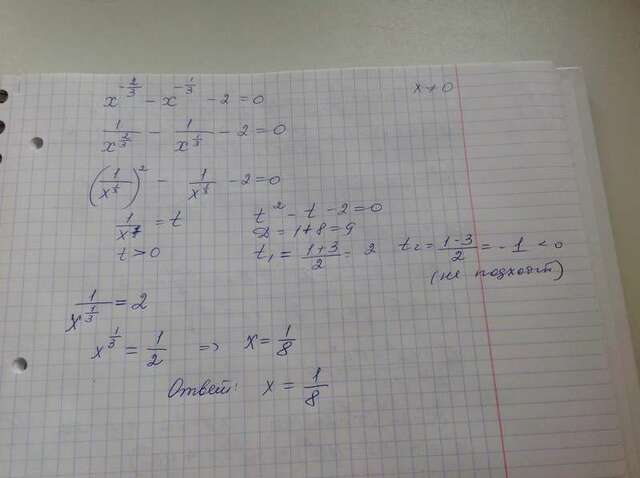 x^{-2/3} - x^{-1/3} - 2 = 0    x ≠ 0
1/x^{2/3} - 1/x^{1/3} - 2 = 0
(1/x^{1/3})^2 - 1/x^{1/3} - 2 = 0
1/x^{1/3} = t    t^2 - t - 2 = 0
D = 1+8 = 9
t > 0    t_1 = (1+3)/2 = 2    t_2 = (1-3)/2 = -1 < 0
(не подходит)
1/x^{1/3} = 2
x^{1/3} = 1/2 => x = 1/8
Ответ: x = 1/8